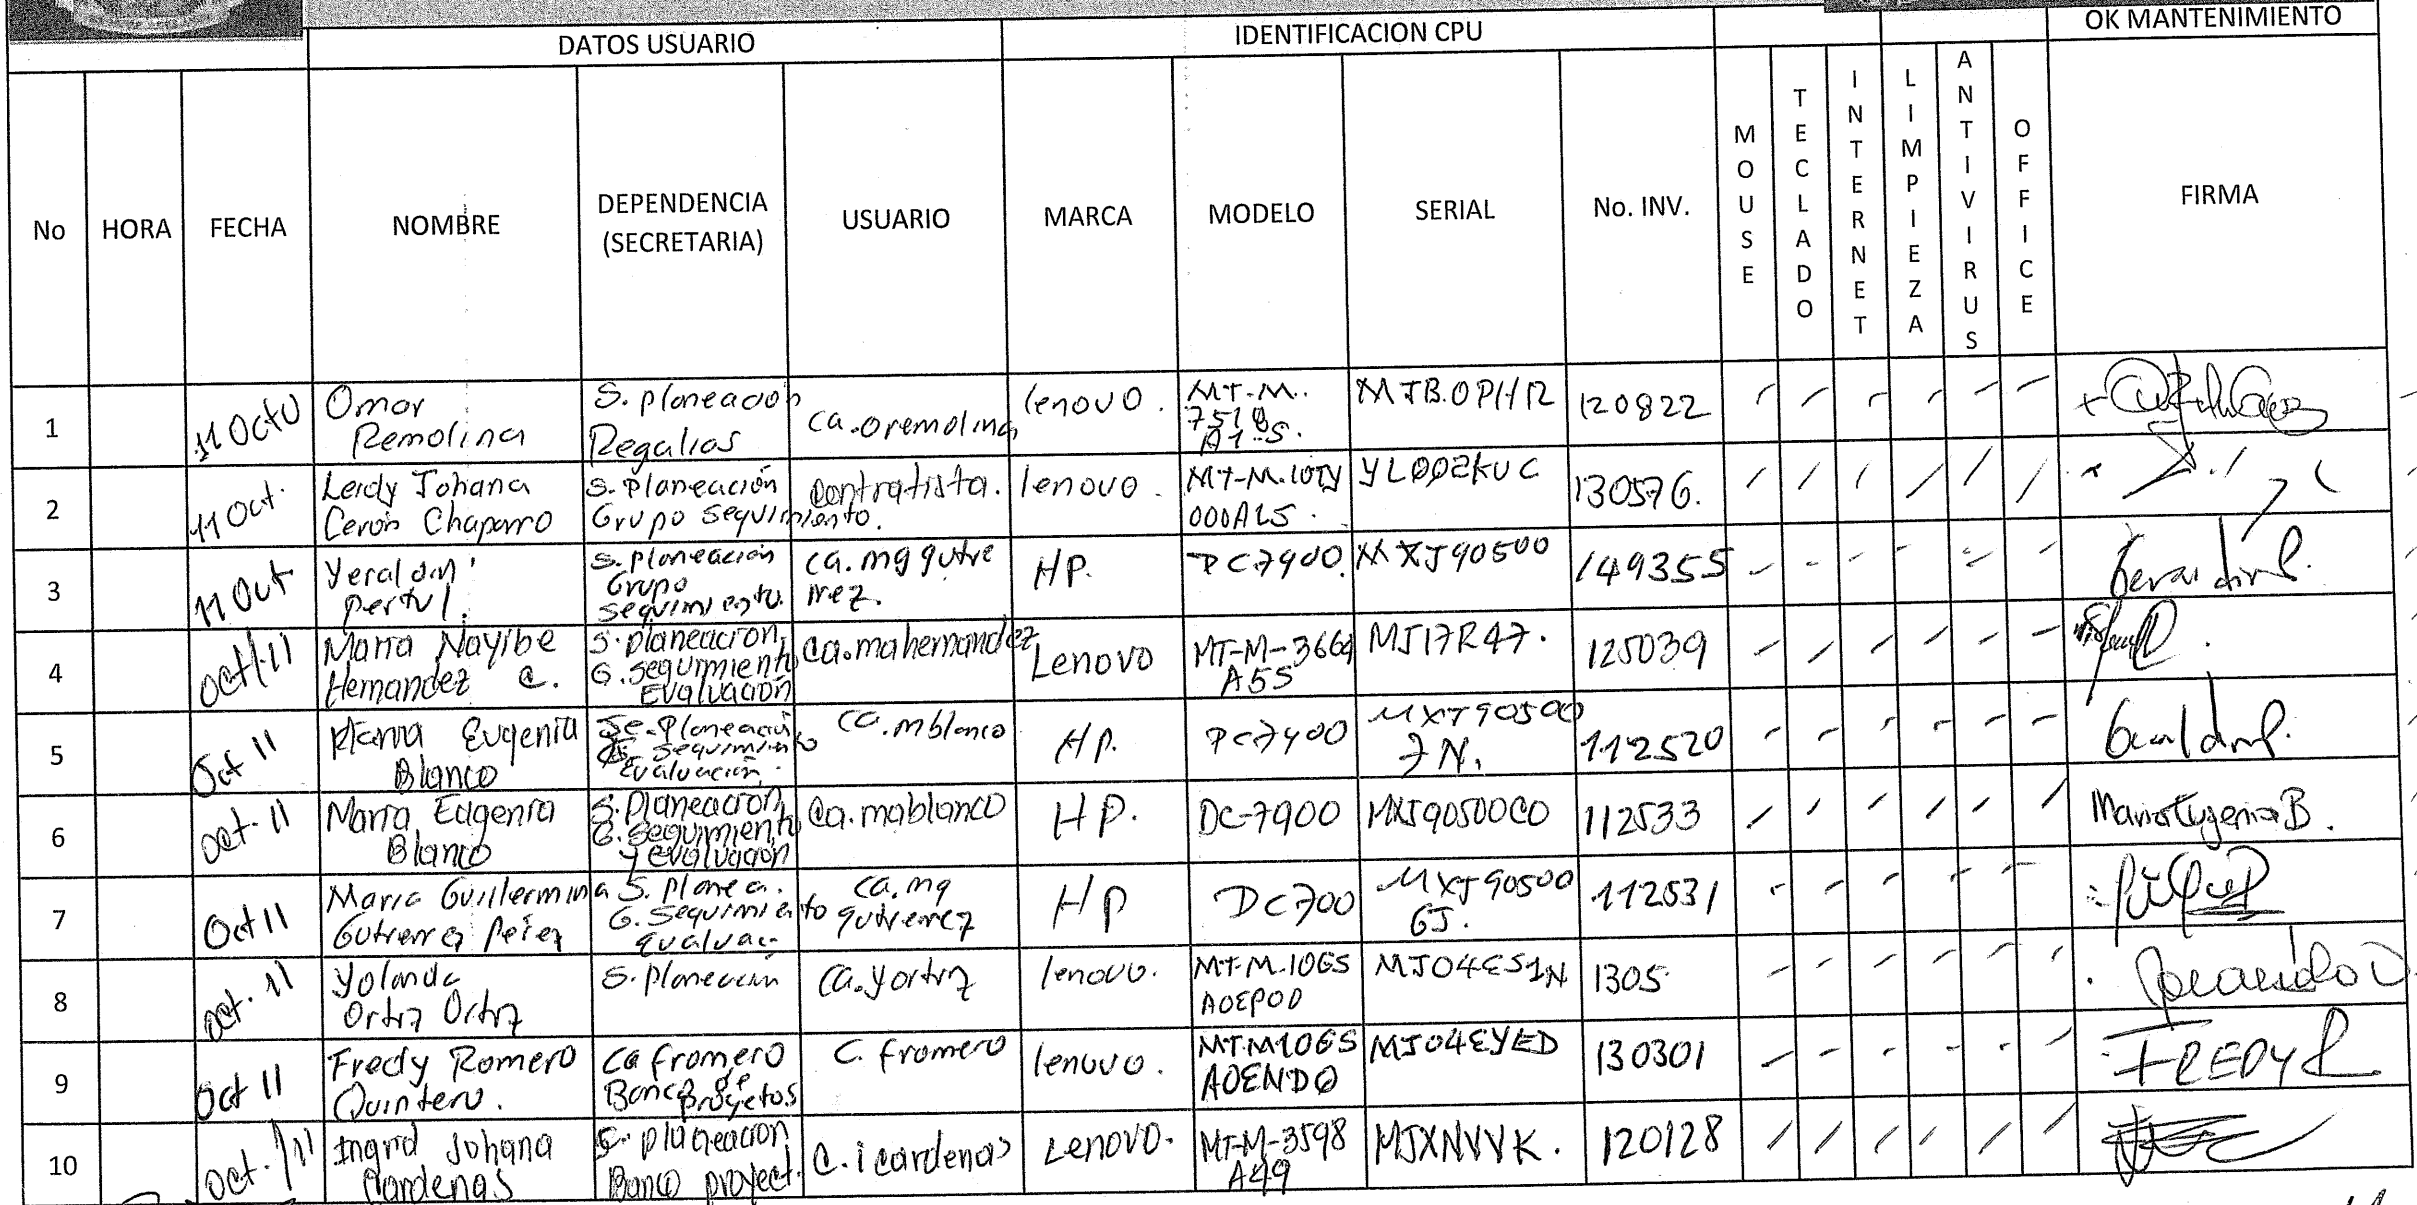 DATOS USUARIO IDENTIFICACION CPU OK MANTENIMIENTO
No HORA FECHA NOMBRE DEPENDENCIA (SECRETARIA) USUARIO MARCA MODELO SERIAL No. INV. MOUSE TECLADO INTERNET LIMPIEZA ANTIVIRUS OFFICE FIRMA
1 11 Octu Omar Remolina S. planeacion Regalias ca.oremolina lenovo. MT-M. 7518 A1-S. MJB.OPHR 120822
2 11 Oct. Leidy Johana Ceron Chaparro S. Planeación Grupo Seguimiento. contratista. lenovo. 000ALS. YL002KUC 130576.
3 11 Oct Yeraldin Pertul. S. Planeación Grupo seguimiento. ca.mggutierrez. HP. DC7900. MXJ90500 149355
4 Oct/11 Maria Nayibe Hernandez C. S. planeacion, G. seguimiento Evaluación ca.mahernandez Lenovo MT-M-3664 A5S MJ17R47. 125039
5 Oct 11 Maria Eugenia Blanco Se. Planeación seguimiento Evaluación. ca.mblanco HP. MXJ90500 7N. 112520
6 Oct-11 Maria Eugenia Blanco S. Planeación, G. seguimiento y evaluación Ca.mablanco HP. DC-7900 MXJ90500CO 112533 Maria Eugenia B.
7 Oct 11 Maria Guillermina Gutierrez Perez S. Planea. G. Seguimiento evaluac. ca.mg gutierrez HP DC700 MXJ90500 GJ. 112531
8 Oct. 11 Yolanda Ortiz Ortiz S. Planeacion Ca.yortiz lenovo. MT-M.10GS A0EP0D MJ04ES1N 1305
9 Oct 11 Fredy Romero Quintero. Ca fromero Banco de proyetos C. fromero lenovo. MT-M10GS A0END0 MJ04EYED 130301 FREDY R
10 Oct./11 Ingrid Johana Cardenas S. planeacion Banco proyect. C.icardenas Lenovo. MT-M-3598 A49 MJXNVVK. 120128